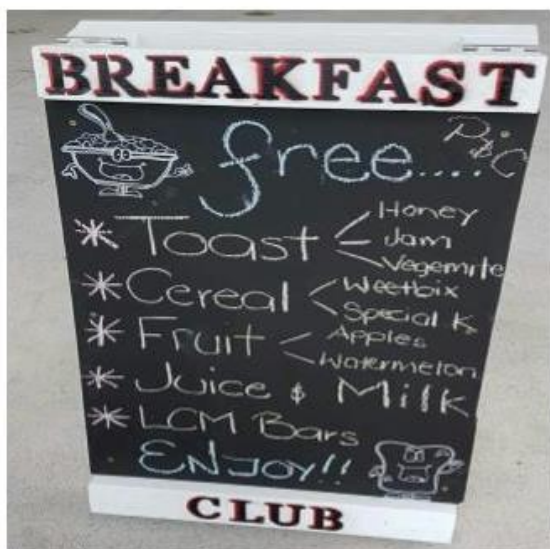 BREAKFAST
free.... P&C
* Toast Honey
Jam
Vegemite
* Cereal Weetbix
Special K
* Fruit Apples
Watermelon
* Juice & Milk
* LCM Bars
ENJOY!!
CLUB